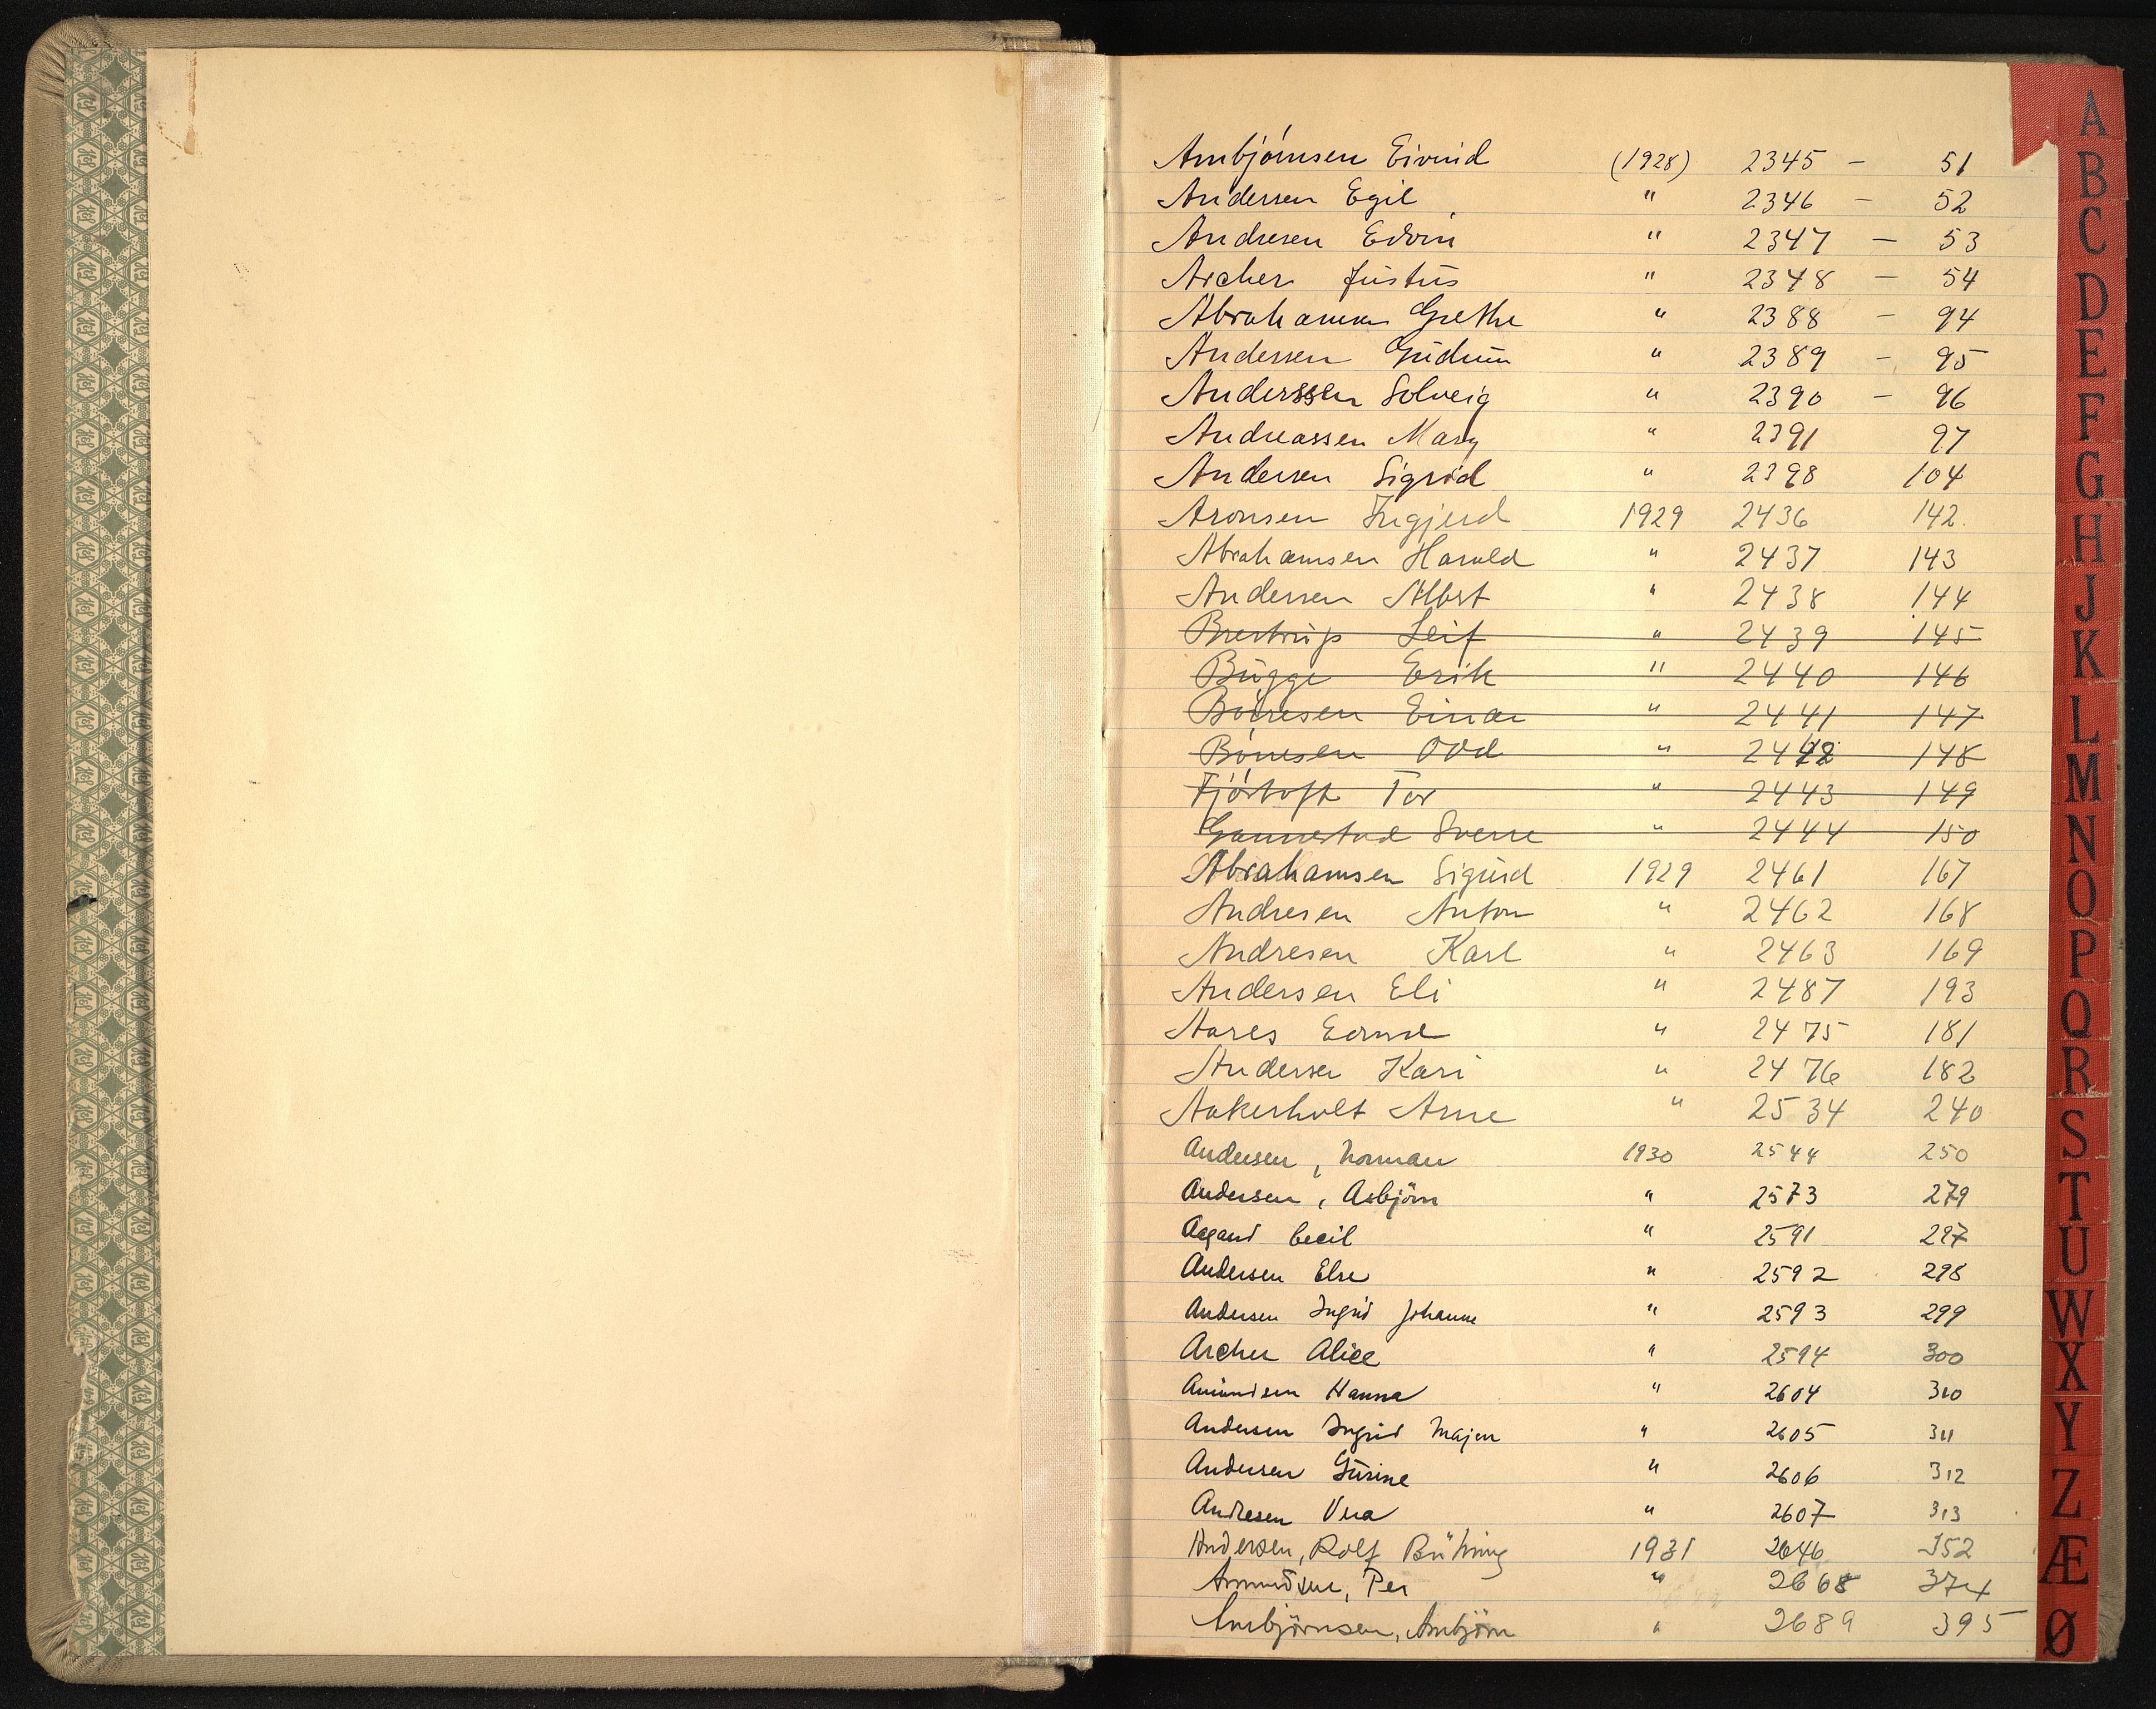 Arnbjørnsen Eivind (1928) 2345 - 51
Andersen Egil " 2346 - 52
Andresen Edvin " 2347 - 53
Archer Justus " 2348 - 54
Abrahamsen Grethe " 2388 - 94
Andersen Gudrun " 2389 - 95
Anderssen Solveig " 2390 - 96
Andreassen Mary " 2391 97
Andersen Sigrid " 2398 104
Aronsen Ingjerd 1929 2436 142.
Abrahamsen Harald " 2437 143
Andersen Albert " 2438 144
Brestrup Leif " 2439 145
Bugge Erik " 2440 146
Börresen Einar " 2441 147
Börresen Odd " 2442 148
Fjörtoft Tor " 2443 149
Gannestad Sverre " 2444 150
Abrahamsen Sigurd 1929 2461 167
Andresen Anton " 2462 168
Andresen Karl " 2463 169
Andersen Eli " 2487 193
Aares " 2475 181
Andersen Kari " 2476 182
Aakerholt Arne " 2534 240
Andersen, Norman 1930 2544 250
Andersen, Asbjörn " 2573 279
Aagaard Cecil " 2591 297
Andersen Else " 2592 298
Andersen Ingrid Johanne " 2593 299
Archer Alice " 2594 300
Amundsen Hanna " 2604 310
Andersen Ingrid Majen " 2605 311
Andersen Gurine " 2606 312
Andresen Vera " 2607 313
Andersen, Rolf Bühring 1931 2646 352
Amundsen, Per " 2668 374
Arnbjörnsen, Arnbjörn " 2689 395
A
B
C
D
E
F
G
H
J
K
L
M
N
O
P
Q
R
S
T
U
W
X
Y
Z
Æ
Ø